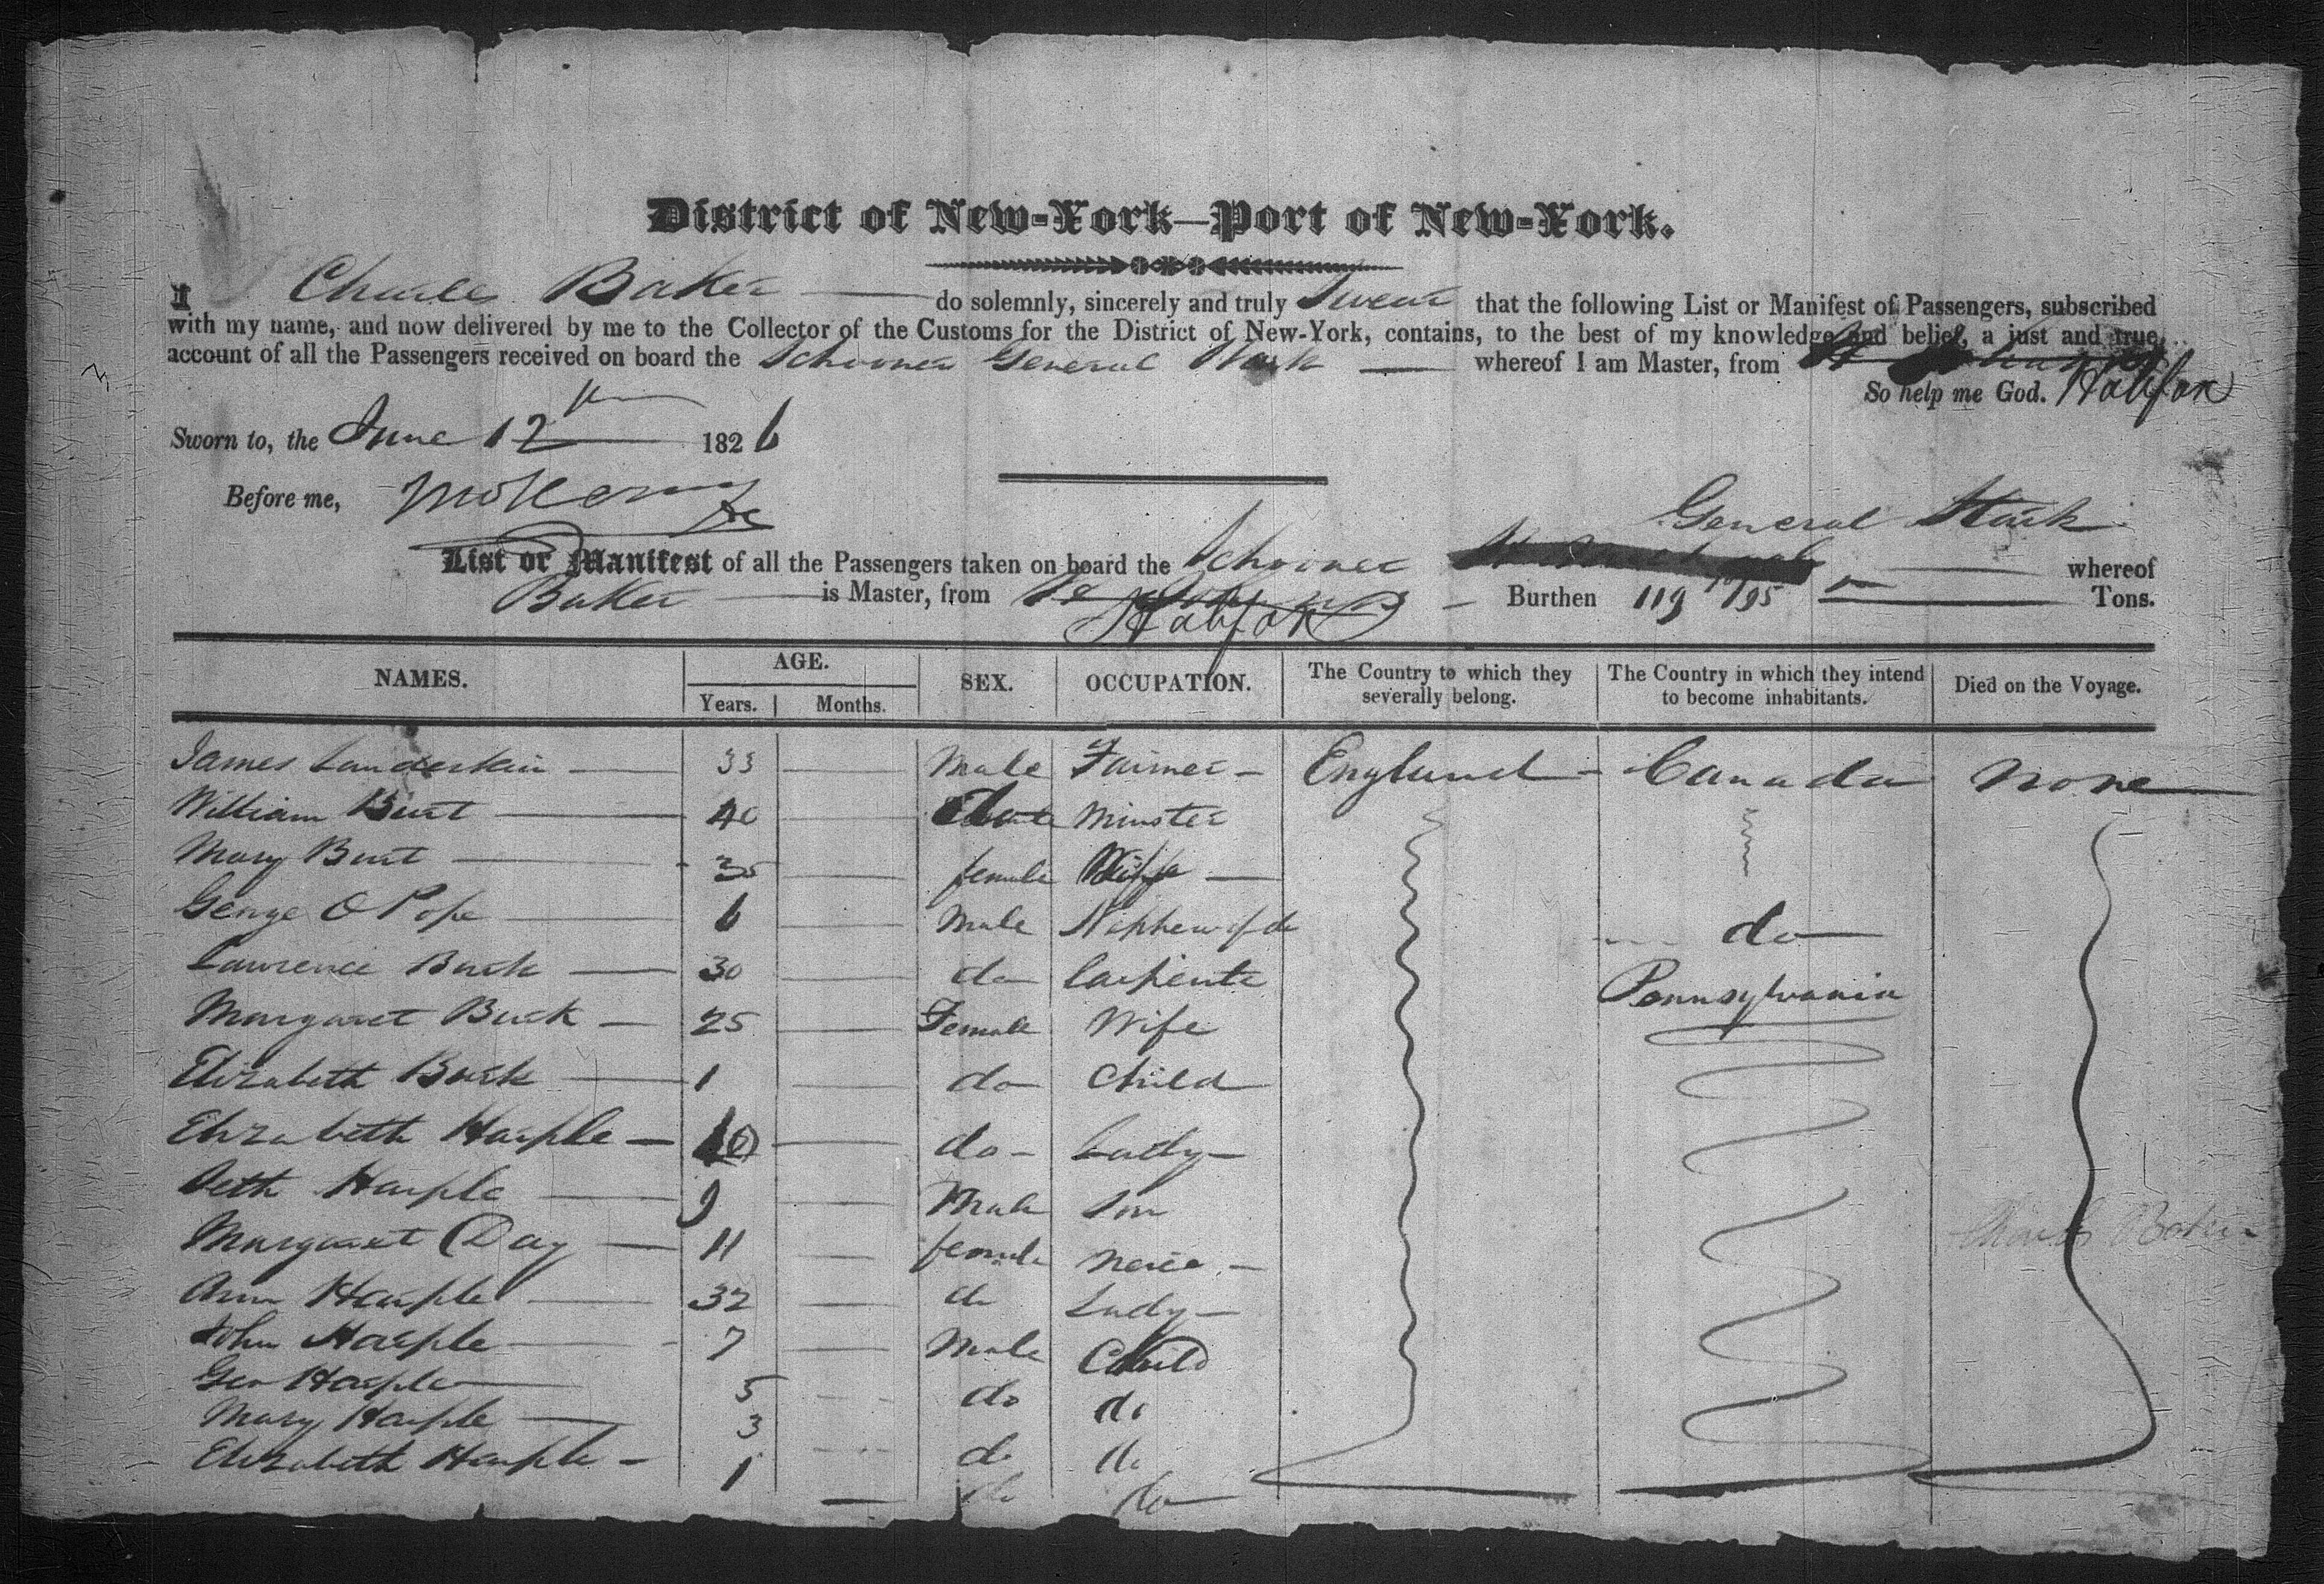 District of New-York—Port of New-York.
I Charles Baker do solemnly, sincerely and truly Swear that the following List or Manifest of Passengers, subscribed
with my name, and now delivered by me to the Collector of the Customs for the District of New-York, contains, to the best of my knowledge and belief, a just and true
account of all the Passengers received on board the Schooner General Stark whereof I am Master, from
So help me God. Halifax
Sworn to, the June 12th 1826
Before me,
General Stark
List or Manifest of all the Passengers taken on board the Schooner whereof
Baker is Master, from Halifax Burthen 119 /95 Tons.
NAMES. AGE. SEX. OCCUPATION. The Country to which they severally belong. The Country in which they intend to become inhabitants. Died on the Voyage.
Years. Months.
James Landerkin 33 Male Farmer England Canada none
William Burt 40 Minster
Mary Burt 35 female Wiffe
George O Pope 6 Male Nephew of do do
Lawrence Buck 30 do Carpente Pennsylvania
Margaret Buck 25 Female Wife
Elizabeth Buck 1 do Child
Elizabeth Harple do Lady
Seth Harple 9 Male Son
Margaret Day 11 female Neice
Ann Harple 32 do Lady
John Harple 7 Male Child
Geo Harple 5 do do
Mary Harple 3 do do
Elizabeth Harple 1 do do
Charles Baker